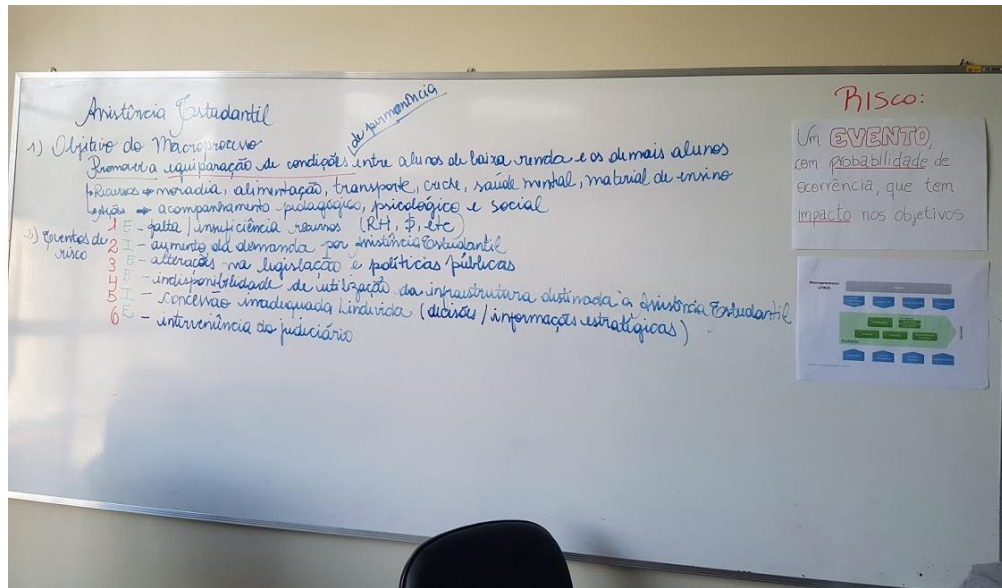 Assistência Estudantil
1) Objetivo do Macroprocesso
(de permanência)
Promover a equiparação de condições entre alunos de baixa renda e os demais alunos
Recursos ⇒ moradia, alimentação, transporte, creche, saúde mental, material de ensino
Ação ⇒ acompanhamento pedagógico, psicológico e social
Eventos de risco
1 E - falta / insuficiência recursos (RH, $, etc)
2 I - aumento da demanda por Assistência Estudantil
3 E - alterações na legislação e políticas públicas
4 - indisponibilidade de utilização da infraestrutura destinada à Assistência Estudantil
5 I - concessão inadequada/indevida (decisões / informações estratégicas)
6 E - interveniência do judiciário
RISCO:
Um EVENTO,
com probabilidade de
ocorrência, que tem
impacto nos objetivos